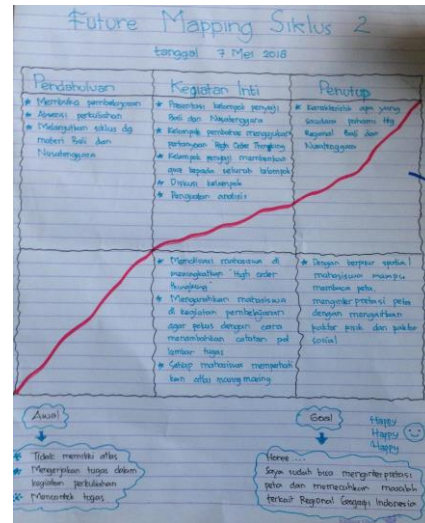 Future Mapping Siklus 2
tanggal 7 Mei 2018
Pendahuluan
* Membuka pembelajaran
* Absensi perkuliahan
* Melanjutkan siklus dg
materi Bali dan
Nusatenggara
Kegiatan Inti
* Presentasi kelompok penyaji
Bali dan Nusatenggara
* Kelompok pembahas menggunakan
pertanyaan High Order Thingking
* Kelompok penyaji memberikan
quiz kepada seluruh kelompok
* Diskusi kelompok
* Penguatan analisis
Penutup
* Karakteristik apa yang
saudara pahami ttg
Regional Bali dan
Nusatenggara
* Memotivasi mahasiswa di
meningkatkan "High order
thingking"
* Mengarahkan mahasiswa
di kegiatan pembelajaran
agar fokus dengan cara
menambahkan catatan pd
lembar tugas
* Setiap mahasiswa memperhati
kan atlas masing masing
* Dengan berpikir spatial
mahasiswa mampu
membaca peta,
menginterpretasi peta
dengan mengaitkan
faktor fisik dan faktor
sosial
Awal
* Tidak memiliki atlas
* Mengerjakan tugas dalam
kegiatan perkuliahan
* Mencontek tugas
Goal
Happy
Happy
Happy
Horee ....
Saya sudah bisa menginterpretasi
peta dan memecahkan masalah
terkait Regional Geografi Indonesia